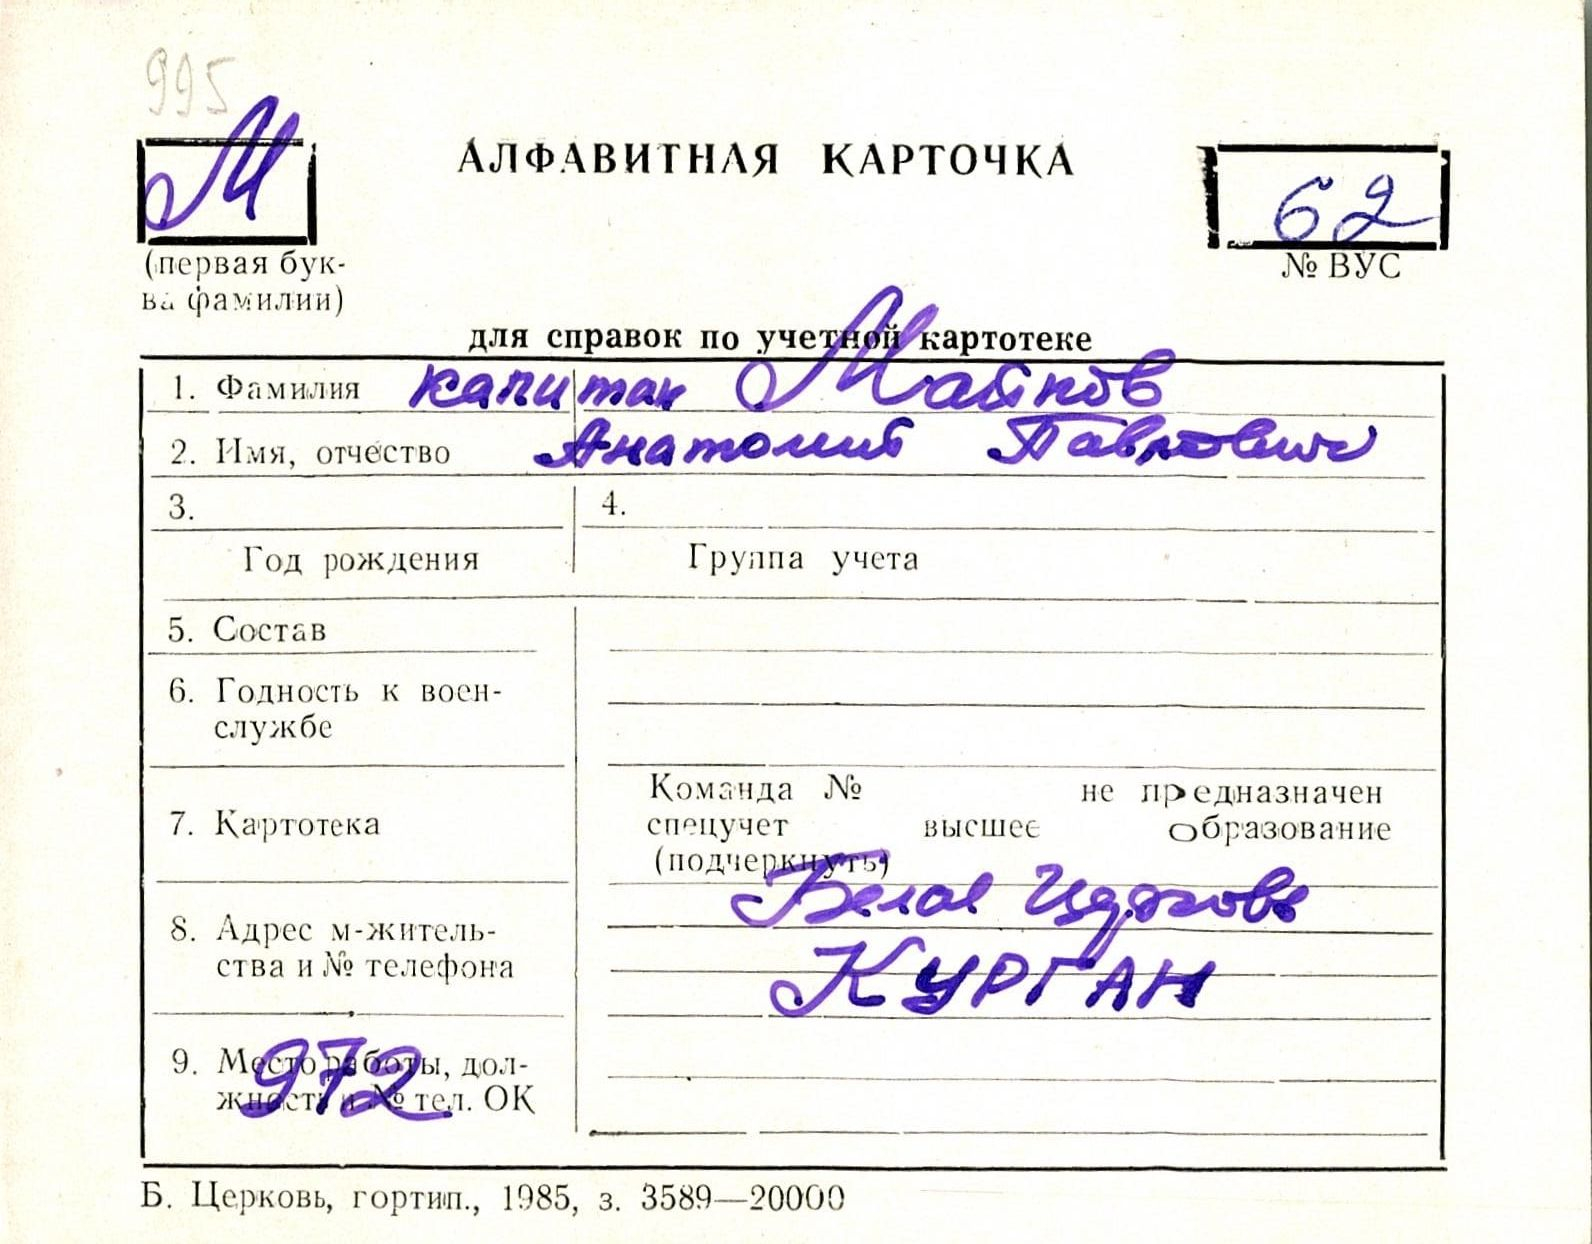 995
М
АЛФАВИТНАЯ КАРТОЧКА
62
(первая бук-
ва фамилии)
№ ВУС
для справок по учетной картотеке
1. Фамилия капитан Майков
2. Имя, отчество Анатолий Павлович
3.
4.
Год рождения
Группа учета
5. Состав
6. Годность к воен-
службе
7. Картотека
Команда № не предназначен
спецучет высшее образование
(подчеркнуть)
8. Адрес м-житель-
ства и № телефона
Белая Церковь
КУРГАН
9. Место работы, дол-
жность и № тел. ОК
972
Б. Церковь, гортип., 1985, з. 3589—20000